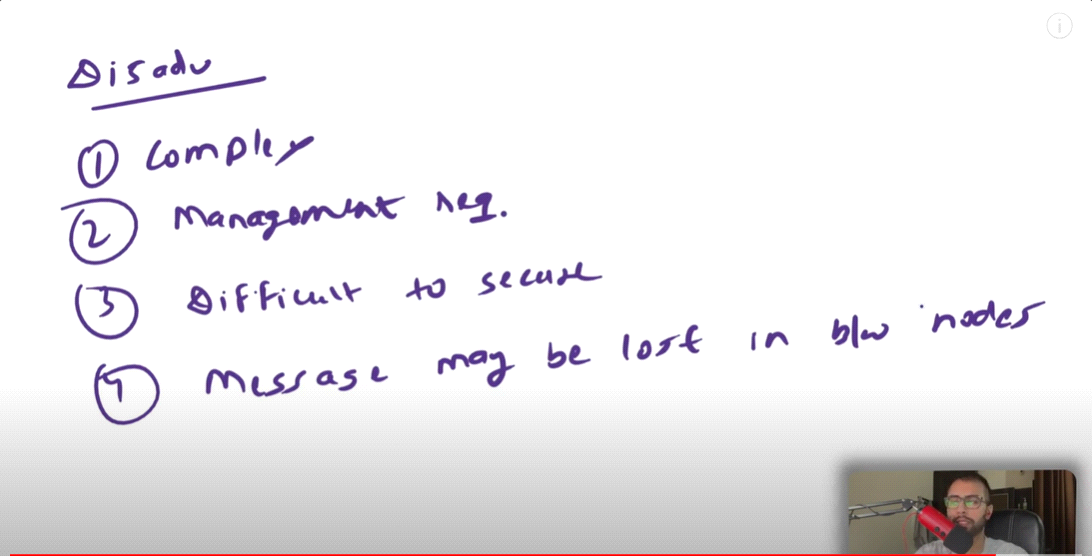 Disadv
① Complex
② Management req.
③ Difficult to secure
④ Message may be lost in b/w nodes